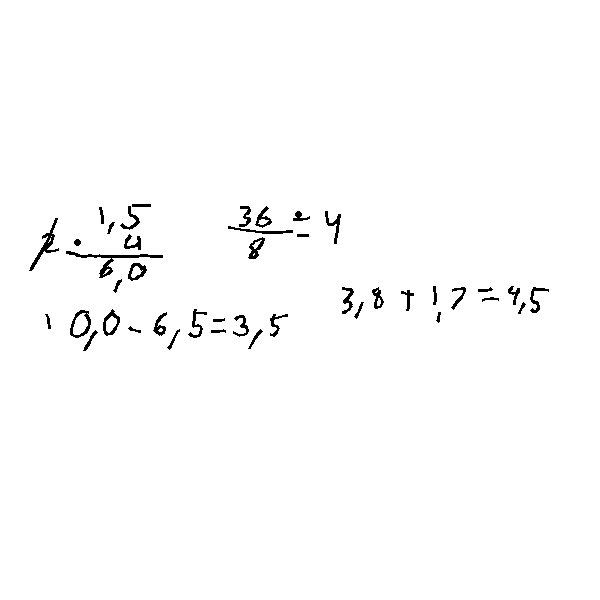 1,5
· 4
6,0
36 ÷ 4
8
10,0 - 6,5 = 3,5
3,8 + 1,7 = 4,5